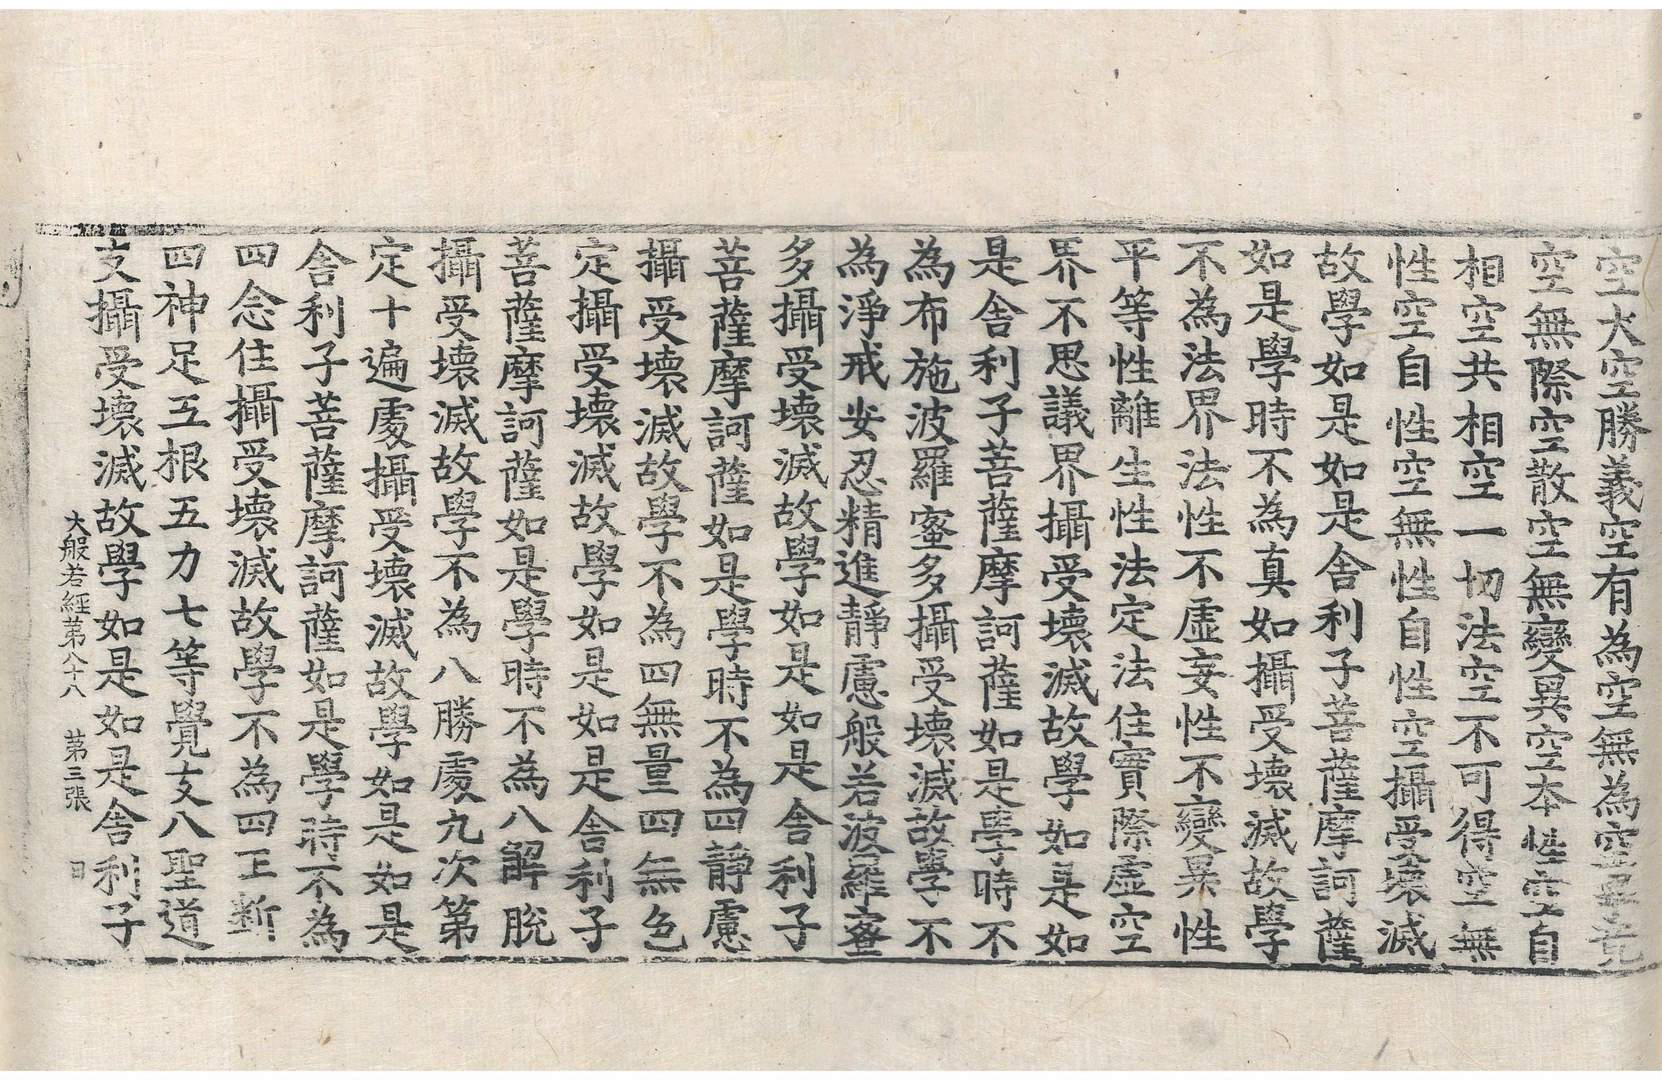 空大空勝義空有為空無為空畢竟
空無際空散空無變異空本性空自
相空共相空一切法空不可得空無
性空自性空無性自性空攝受壞滅
故學如是如是舍利子菩薩摩訶薩
如是學時不為真如攝受壞滅故學
不為法界法性不虛妄性不變異性
平等性離生性法定法住實際虛空
界不思議界攝受壞滅故學如是如
是舍利子菩薩摩訶薩如是學時不
為布施波羅蜜多攝受壞滅故學不
為淨戒安忍精進靜慮般若波羅蜜
多攝受壞滅故學如是如是舍利子
菩薩摩訶薩如是學時不為四靜慮
攝受壞滅故學不為四無量四無色
定攝受壞滅故學如是如是舍利子
菩薩摩訶薩如是學時不為八解脫
攝受壞滅故學不為八勝處九次第
定十遍處攝受壞滅故學如是如是
舍利子菩薩摩訶薩如是學時不為
四念住攝受壞滅故學不為四正斷
四神足五根五力七等覺支八聖道
支攝受壞滅故學如是如是舍利子
大般若經第八十八 第三張 日